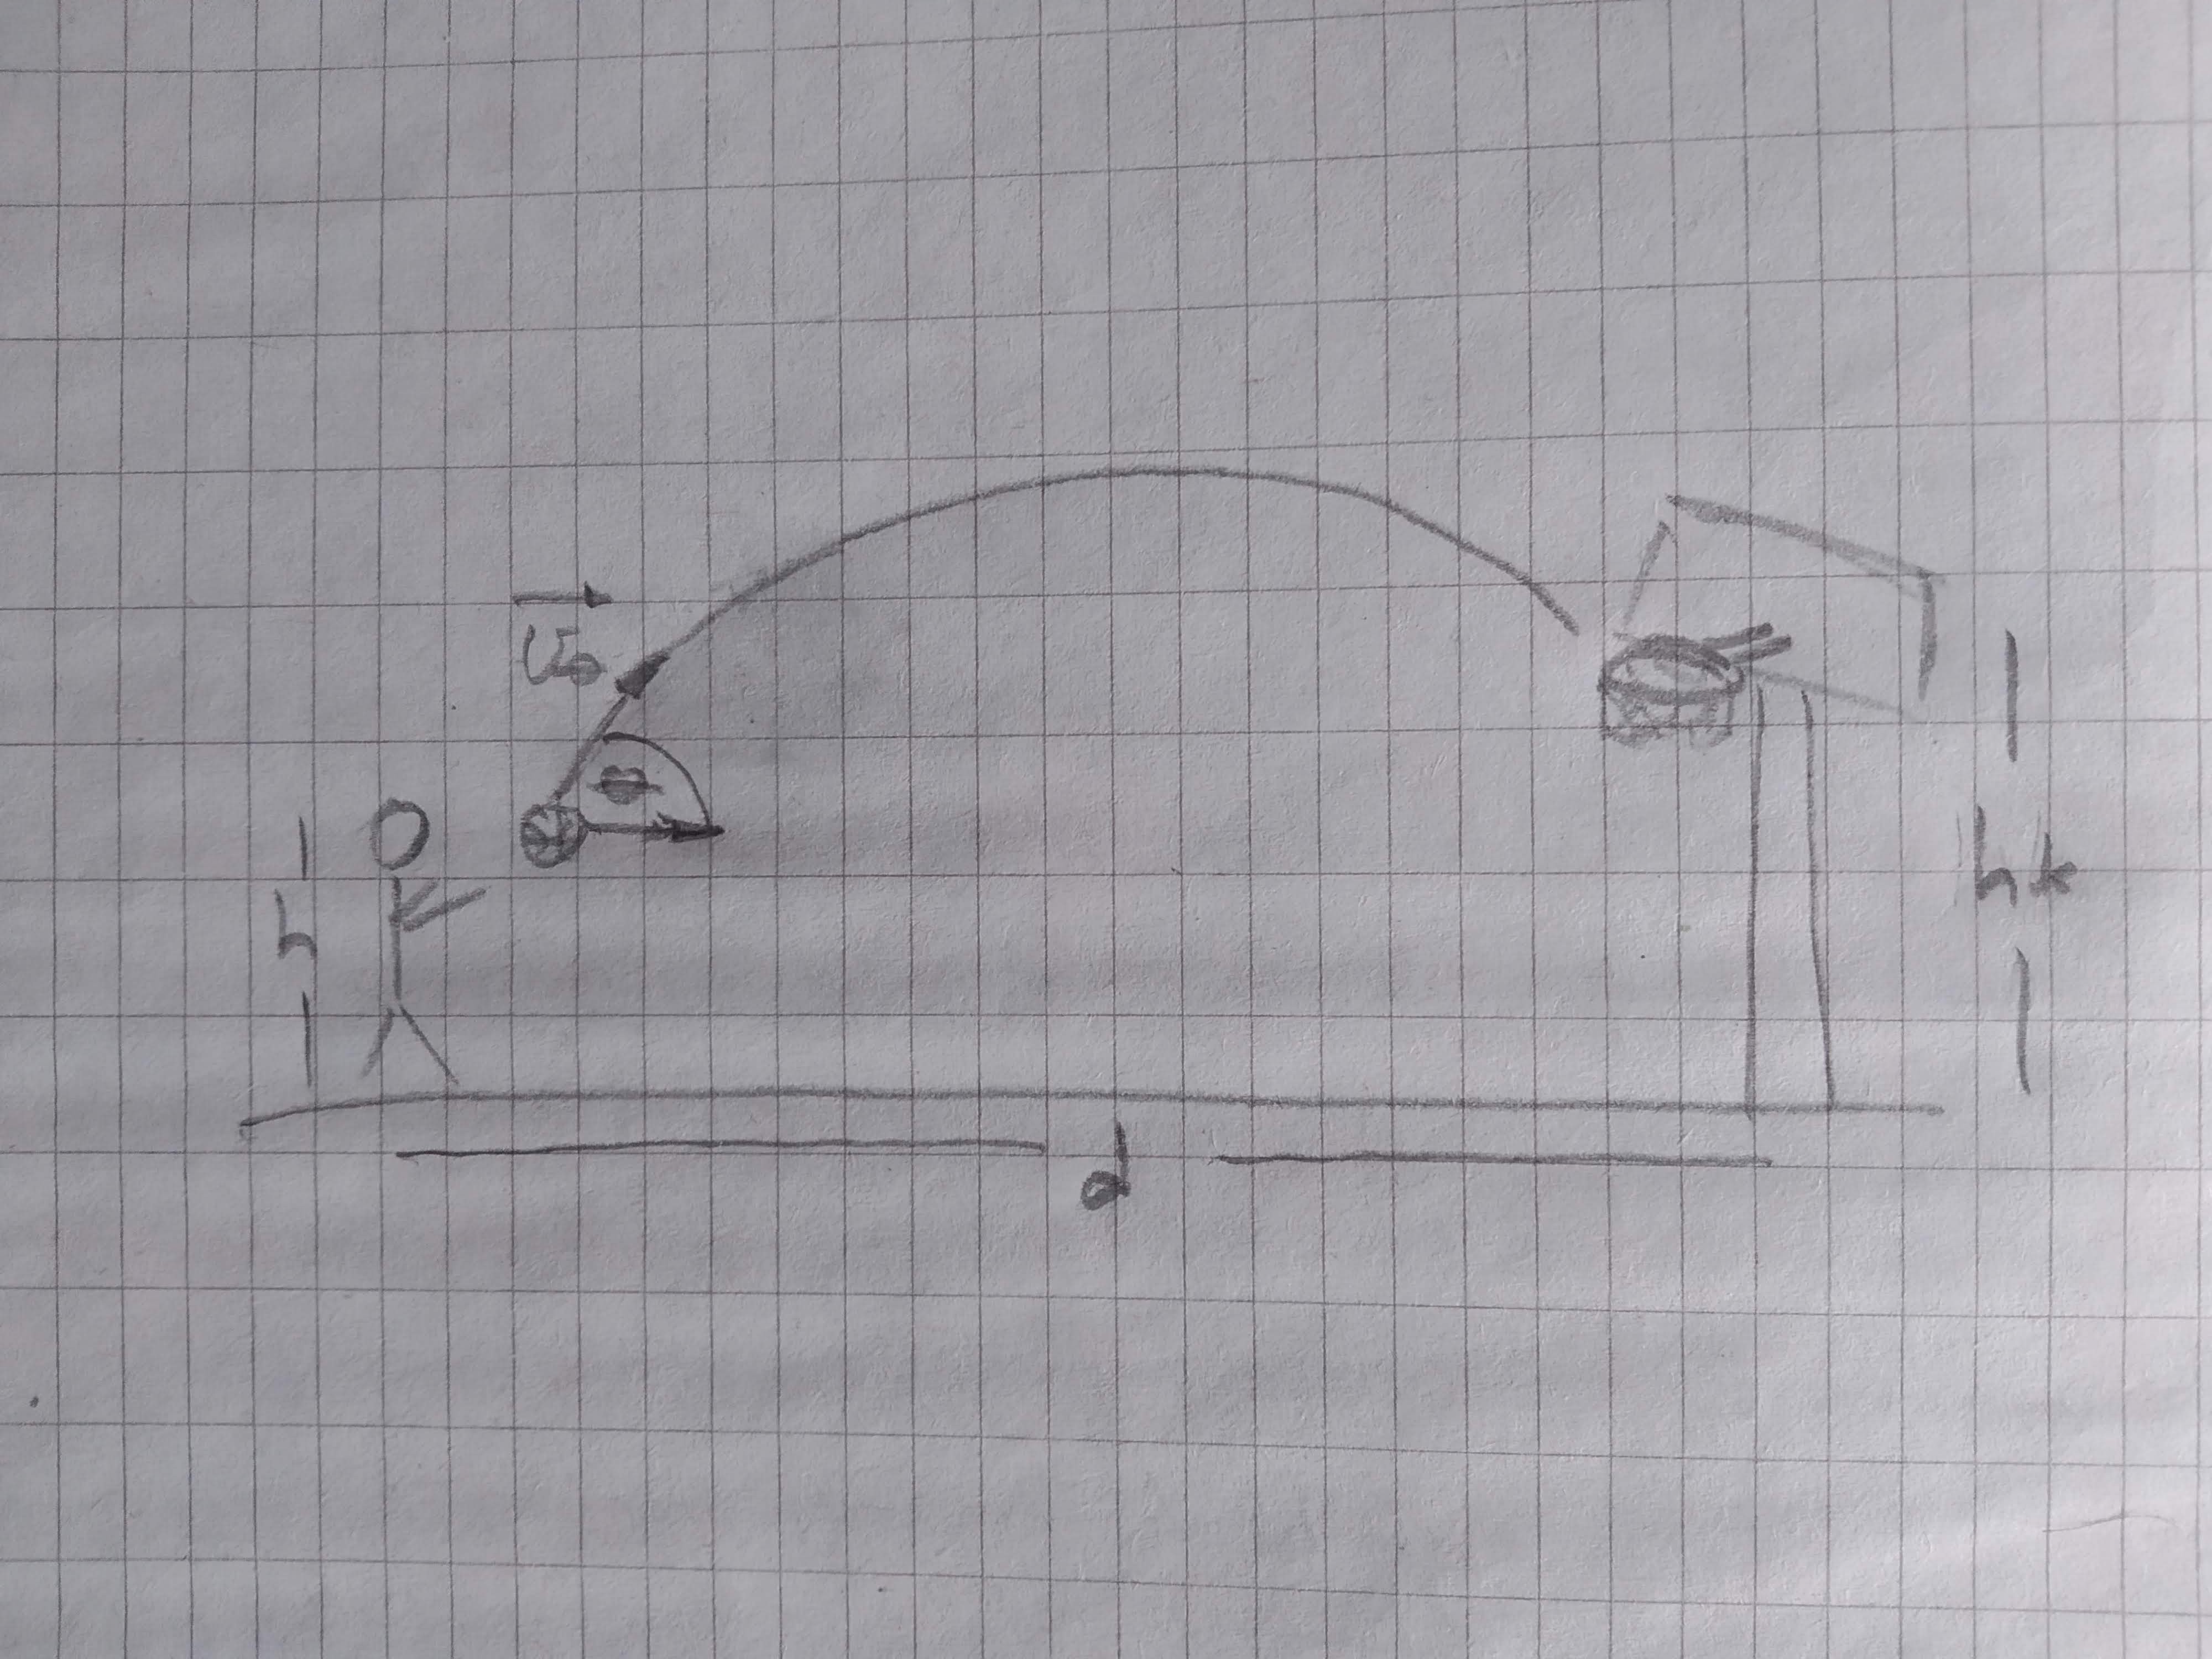 v₀
θ
h
hk
d